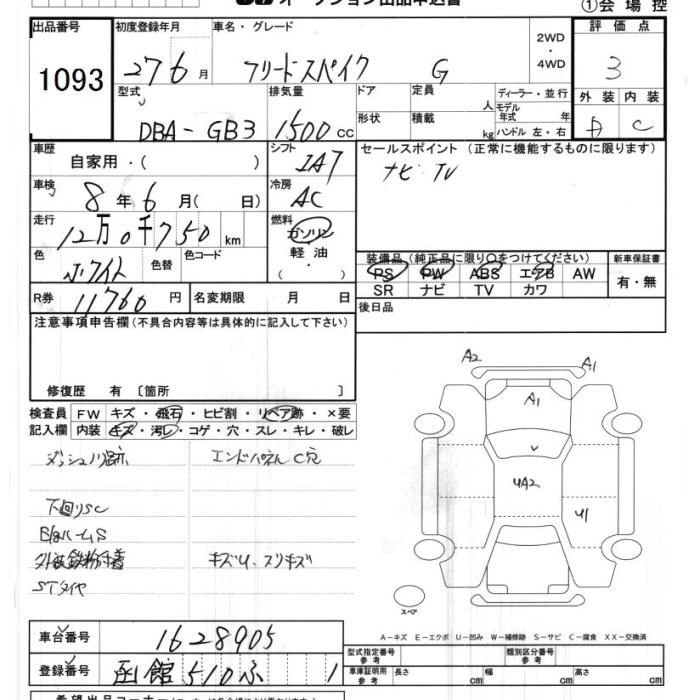 ①会場控
出品番号 初度登録年月 車名・グレード 2WD ・ 4WD 評価点
1093 27 6月 フリードスパイク G 3
型式 排気量 ドア 定員 人 ディーラー・並行 外装 内装
DBA-GB3 1500cc 形状 積載 kg モデル年式 年 ハンドル 左・右 C
車歴 自家用・( ) シフト IA7 セールスポイント (正常に機能するものに限ります)
ナビ TV
車検 8年6月( 日) 冷房 AC
走行 12万0千750km 燃料 ガソリン 軽油 ・ ( )
色 ホワイト 色替 色コード
装備品 (純正品に限り○をつけてください) 新車保証書
PS PW ABS エアB AW 有・無
SR ナビ TV カワ
R券 11760円 名変期限 月 日 後日品
注意事項申告欄(不具合内容等は具体的に記入して下さい)
修復歴 有 〔箇所 〕
検査員 FW キズ・飛石・ヒビ割・リペア跡・×要
記入欄 内装 キズ・汚レ・コゲ・穴・スレ・キレ・破レ
ダッシュノリ跡 エンドパネルC穴
下回りSC
外装鉄粉付着 キズU、スリキズ
STタイヤ
A2 A1
A1
UA2
U1
スペア
A-キズ E-エクボ U-凹み W-補修跡 S-サビ C-腐食 XX-交換済
車台番号 1628905 型式指定番号 参考 類別区分番号 参考
登録番号 函館 510 ふ 1 車庫証明用 参考 長さ cm 幅 cm 高さ cm